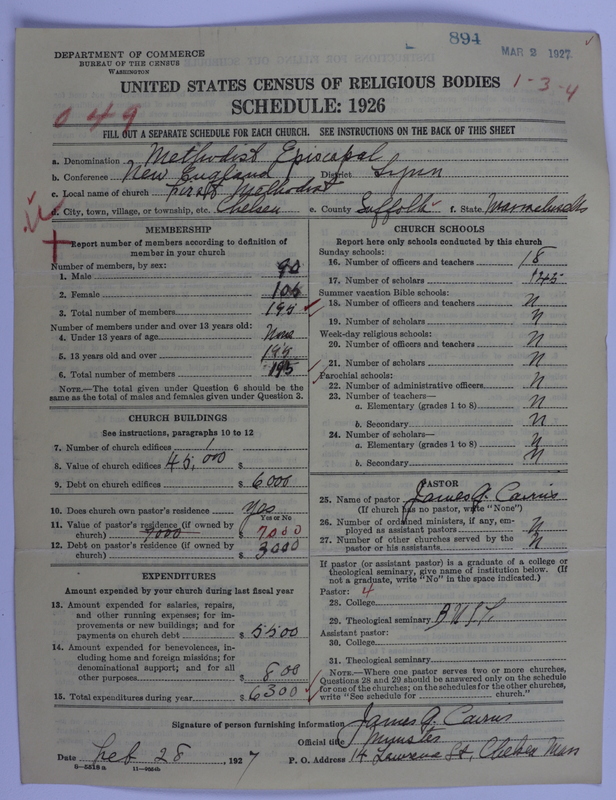 894
MAR 2 1927
DEPARTMENT OF COMMERCE
BUREAU OF THE CENSUS
WASHINGTON
UNITED STATES CENSUS OF RELIGIOUS BODIES
1-3-4
SCHEDULE: 1926
049
FILL OUT A SEPARATE SCHEDULE FOR EACH CHURCH. SEE INSTRUCTIONS ON THE BACK OF THIS SHEET
a. Denomination Methodist Episcopal
b. Conference New England District Lynn
c. Local name of church First Methodist
d. City, town, village, or township, etc. Chelsea e. County Suffolk f. State Massachusetts
MEMBERSHIP
Report number of members according to definition of member in your church
Number of members, by sex:
1. Male 90
2. Female 105
3. Total number of members 195
Number of members under and over 13 years old:
4. Under 13 years of age None
5. 13 years old and over 195
6. Total number of members 195
NOTE.—The total given under Question 6 should be the same as the total of males and females given under Question 3.
CHURCH BUILDINGS
See instructions, paragraphs 10 to 12
7. Number of church edifices 1
8. Value of church edifices 45,000 $
9. Debt on church edifices $ 6000
10. Does church own pastor's residence Yes
Yes or No
11. Value of pastor's residence (if owned by church) 7000 $ 7000
12. Debt on pastor's residence (if owned by church) $ 3000
EXPENDITURES
Amount expended by your church during last fiscal year
13. Amount expended for salaries, repairs, and other running expenses; for improvements or new buildings; and for payments on church debt $ 5500
14. Amount expended for benevolences, including home and foreign missions; for denominational support; and for all other purposes $ 800
15. Total expenditures during year $ 6300
CHURCH SCHOOLS
Report here only schools conducted by this church
Sunday schools:
16. Number of officers and teachers 18
17. Number of scholars 145
Summer vacation Bible schools:
18. Number of officers and teachers N
19. Number of scholars N
Week-day religious schools:
20. Number of officers and teachers N
21. Number of scholars N
Parochial schools:
22. Number of administrative officers N
23. Number of teachers—
a. Elementary (grades 1 to 8) N
b. Secondary N
24. Number of scholars—
a. Elementary (grades 1 to 8) N
b. Secondary N
PASTOR
25. Name of pastor James G. Cairns
(If church has no pastor, write "None")
26. Number of ordained ministers, if any, employed as assistant pastors N
27. Number of other churches served by the pastor or his assistants N
If pastor (or assistant pastor) is a graduate of a college or theological seminary, give name of institution below. (If not a graduate, write "No" in the space indicated.)
Pastor: 4
28. College
29. Theological seminary
Assistant pastor:
30. College
31. Theological seminary
NOTE.—Where one pastor serves two or more churches, Questions 28 and 29 should be answered only on the schedule for one of the churches; on the schedules for the other churches, write "See schedule for church."
Signature of person furnishing information James G. Cairns
Official title Minister
Date Feb 28, 1927 P. O. Address 14 St, Chelsea Mass
8—5518 a